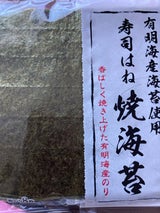 有明海産海苔使用
寿司はね
焼海苔
香ばしく焼き上げた有明海産のり